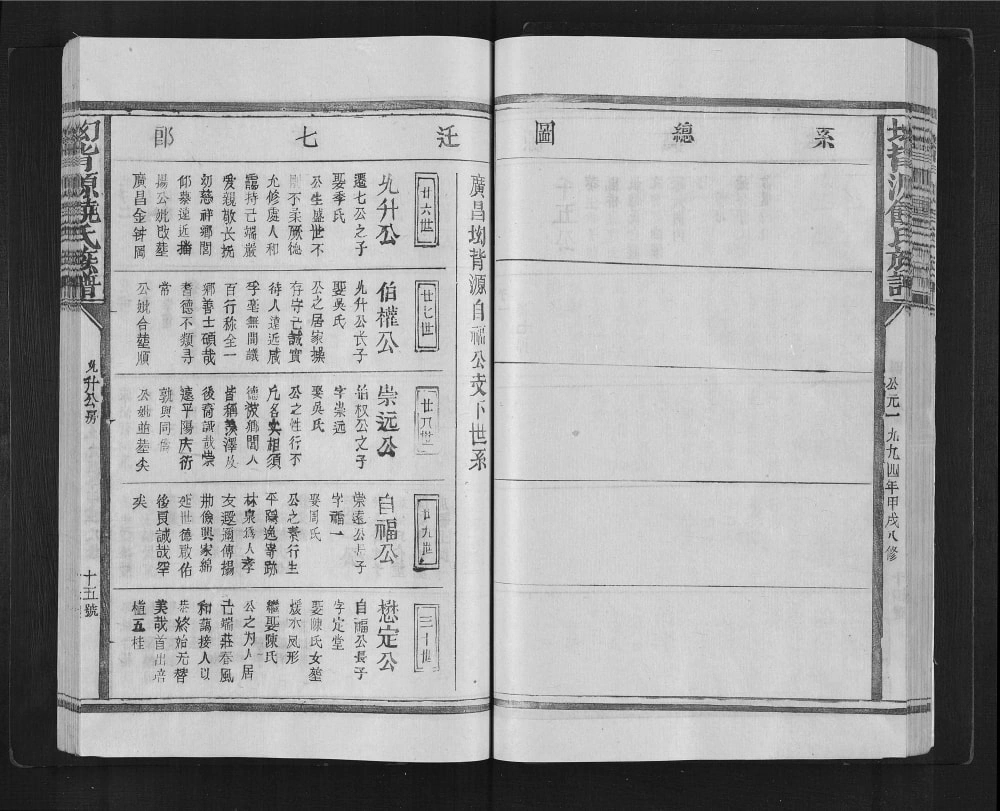 系總圖
公元一九九四年甲戌八修
迁七郎
廣昌坳背源自福公支下世系
廿六世
允升公
遷七公之子
娶季氏
公生盛世不
剛不柔厥德
允修處人和
靄持己端嚴
愛親敬長撫
幼慈祥鄉閭
仰慕遠近播
揚公妣啟塟
廣昌金钟岡
廿七世
伯權公
允升公长子
娶吳氏
公之居家操
存守己誠實
待人遠近咸
孚毫無間議
百行称全一
鄉善士碩哉
耆德不類寻
常
公妣合塟順
廿八世
崇远公
伯权公之子
字崇远
娶吳氏
公之性行不
凡名实相須
德被鄉閭人
皆稱羡澤及
後裔誠哉崇
遠平陽庆衍
孰興同儔
公妣並塟尖
廿九世
自福公
崇遠公長子
字福一
娶周氏
公之素行生
平隱逸寄跡
林泉為人孝
友遐邇傳揚
勤儉興家綿
延世德啟佑
後昆誠哉罕
矣
三十世
懋定公
自福公長子
字定堂
娶陳氏女塟
煖水凤形
繼娶陳氏
公之为人居
己端莊春風
和藹接人以
恭終始无替
美哉首出培
植五桂
坳背源饒氏族譜
允升公房
十五號